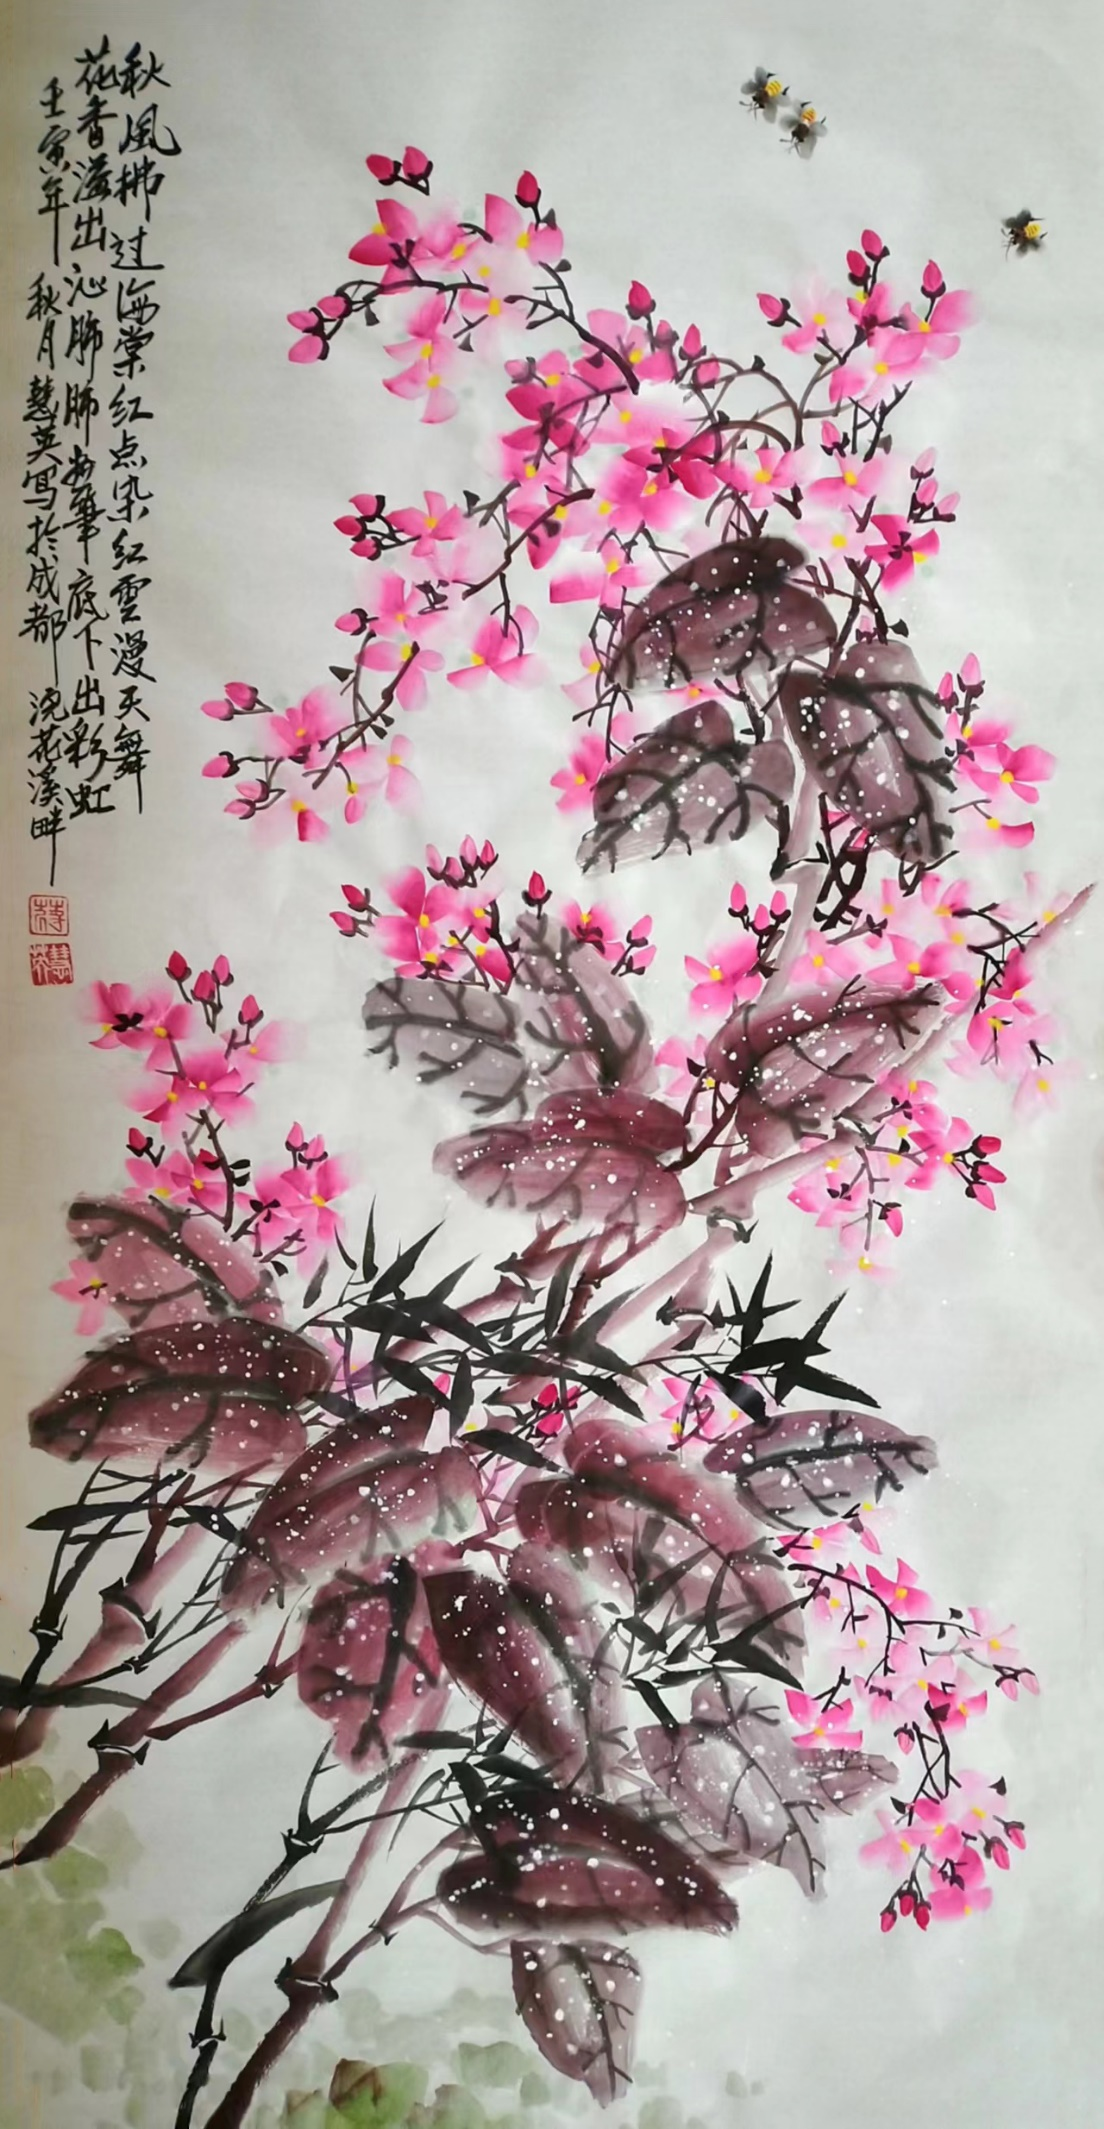 秋风拂过海棠红点染红雲漫天舞
花香溢出沁肺肺 筆底下出彩虹
壬寅年 秋月慧英写於成都 浣花溪畔
慧英